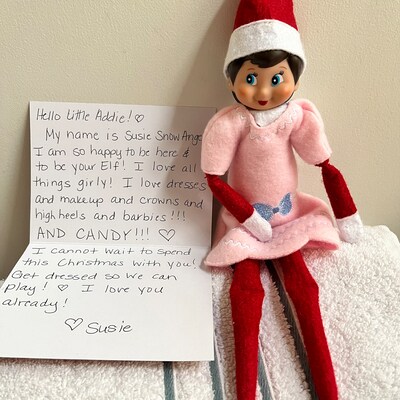 Hello Little Addie! ♡
My name is Susie Snow Angel
I am so happy to be here &
to be your Elf! I love all
things girly! I love dresses
and makeup and crowns and
high heels and barbies!!!
AND CANDY!!! ♡
I cannot wait to spend
this Christmas with you!
Get dressed so we can
play! ♡ I love you
already!
♡ Susie